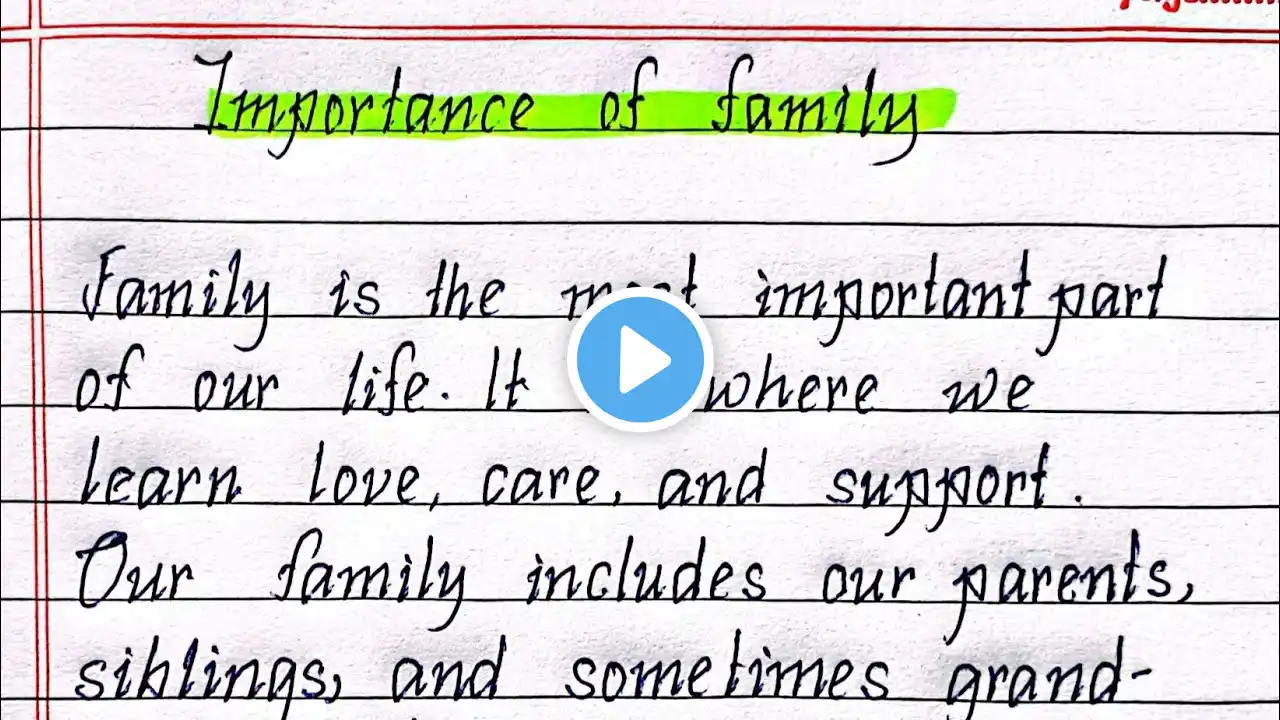 Importance of family
Family is the most important part
of our life. It where we
learn love, care, and support.
Our family includes our parents,
siblings, and sometimes grand-